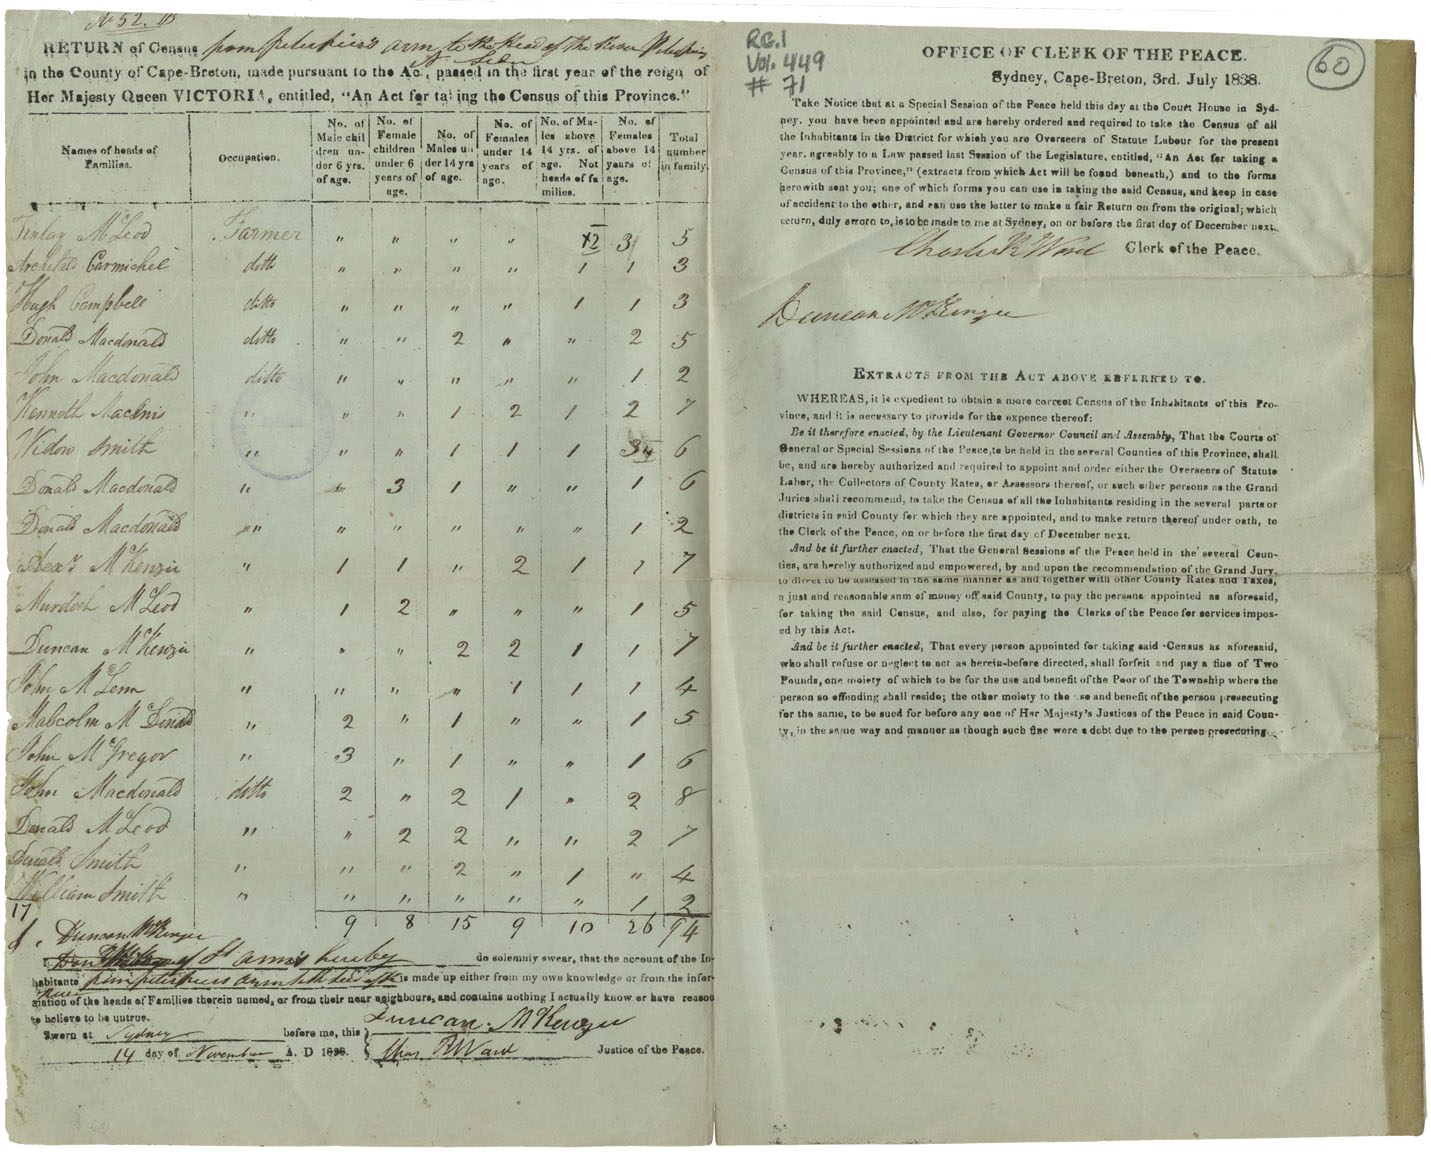 No 52.
RETURN of Census from arm to the Head of the River
in the County of Cape-Breton, made pursuant to the Act, passed in the first year of the reign of
Her Majesty Queen VICTORIA, entitled, "An Act for taking the Census of this Province."
Names of heads of Families. | Occupation. | No. of Male children under 6 yrs. of age. | No. of Female children under 6 years of age. | No. of Males under 14 yrs of age. | No. of Females under 14 years of age. | No. of Males above 14 yrs. of age. Not heads of families. | No. of Females above 14 years of age. | Total number in family.
Finlay McLeod | Farmer | " | " | " | " | 2 | 3 | 5
Archibald Carmichel | ditto | " | " | " | " | 1 | 1 | 3
Hugh Campbell | ditto | " | " | " | " | 1 | 1 | 3
Donald Macdonald | ditto | " | " | 2 | " | " | 2 | 5
John Macdonald | ditto | " | " | " | " | " | 1 | 2
Kenneth MacInis | " | " | " | 1 | 2 | 1 | 2 | 7
Widow Smith | " | " | " | 1 | 1 | 1 | 3 | 6
Donald Macdonald | " | " | 3 | 1 | " | " | 1 | 6
Donald Macdonald | "" | " | " | " | " | " | 1 | 2
Alexr McKenzie | " | 1 | 1 | " | 2 | 1 | 1 | 7
Murdoch McLeod | " | 1 | 2 | " | " | " | 1 | 5
Duncan McKenzie | " | " | " | 2 | 2 | 1 | 1 | 7
John McLenn | " | " | " | " | 1 | 1 | 1 | 4
Malcolm | " | 2 | " | 1 | " | " | 1 | 5
John McGregor | " | 3 | " | 1 | " | " | 1 | 6
John Macdonald | ditto | 2 | " | 2 | 1 | " | 2 | 8
Donald McLeod | " | " | 2 | 2 | " | " | 2 | 7
Donald Smith | " | " | " | 2 | " | 1 | " | 4
William Smith | " | " | " | " | " | " | 1 | 2
17 | 9 | 8 | 15 | 9 | 10 | 26 | 94
I, Duncan McKenzie
of St anns hereby do solemnly swear, that the account of the In-
habitants is made up either from my own knowledge or from the infor-
mation of the heads of Families therein named, or from their near neighbours, and contains nothing I actually know or have reason
to believe to be untrue.
Duncan McKenzie
Sworn at Sydney before me, this
14 day of November A. D 1838. Chas R Ward Justice of the Peace.
RG.1
Vol. 449
# 71
60
OFFICE OF CLERK OF THE PEACE.
Sydney, Cape-Breton, 3rd. July 1838.
Take Notice that at a Special Session of the Peace held this day at the Court House in Syd-
ney. you have been appointed and are hereby ordered and required to take the Census of all
the Inhabitants in the District for which you are Overseers of Statute Labour for the present
year, agreably to a Law passed last Session of the Legislature, entitled, "An Act for taking a
Census of this Province," (extracts from which Act will be found beneath,) and to the forms
herewith sent you; one of which forms you can use in taking the said Census, and keep in case
of accident to the other, and can use the latter to make a fair Return on from the original; which
return, duly sworn to, is to be made to me at Sydney, on or before the first day of December next.
Charles R Ward Clerk of the Peace.
Duncan McKenzie
EXTRACTS FROM THE ACT ABOVE REFERRED TO.
WHEREAS, it is expedient to obtain a more correct Census of the Inhabitants of this Pro-
vince, and it is necessary to provide for the expence thereof:
Be it therefore enacted, by the Lieutenant Governor Council and Assembly, That the Courts of
General or Special Sessions of the Peace, to be held in the several Counties of this Province, shall
be, and are hereby authorized and required to appoint and order either the Overseers of Statute
Labor, the Collectors of County Rates, or Assessors thereof, or such other persons as the Grand
Juries shall recommend, to take the Census of all the Inhabitants residing in the several parts or
districts in said County for which they are appointed, and to make return thereof under oath, to
the Clerk of the Peace, on or before the first day of December next.
And be it further enacted, That the General Sessions of the Peace held in the several Coun-
ties, are hereby authorized and empowered, by and upon the recommendation of the Grand Jury,
to direct to be assessed in the same manner as and together with other County Rates and Taxes,
a just and reasonable snm of money off said County, to pay the persons appointed as aforesaid,
for taking the said Census, and also, for paying the Clerks of the Peace for services impos-
ed by this Act.
And be it further enacted, That every person appointed for taking said Census as aforesaid,
who shall refuse or neglect to act as herein-before directed, shall forfeit and pay a fine of Two
Pounds, one moiety of which to be for the use and benefit of the Poor of the Township where the
person so offending shall reside; the other moiety to the use and benefit of the person prosecuting
for the same, to be sued for before any one of Her Majesty's Justices of the Peace in said Coun-
ty, in the same way and manner as though such fine were a debt due to the person prosecuting.